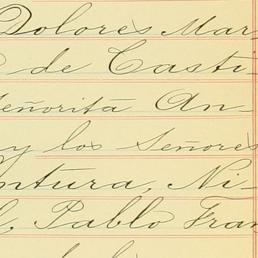 Dolores Mar-
de Casti-
Señorita An-
y los Señores
ntura, Ni-
Pablo Fran